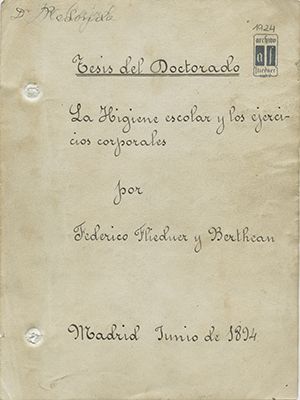 Dr
1924
archivo
Fliedner
Tesis del Doctorado
La Higiene escolar y los ejerci-
cios corporales
por
Federico Fliedner y Bertheau
Madrid Junio de 1894